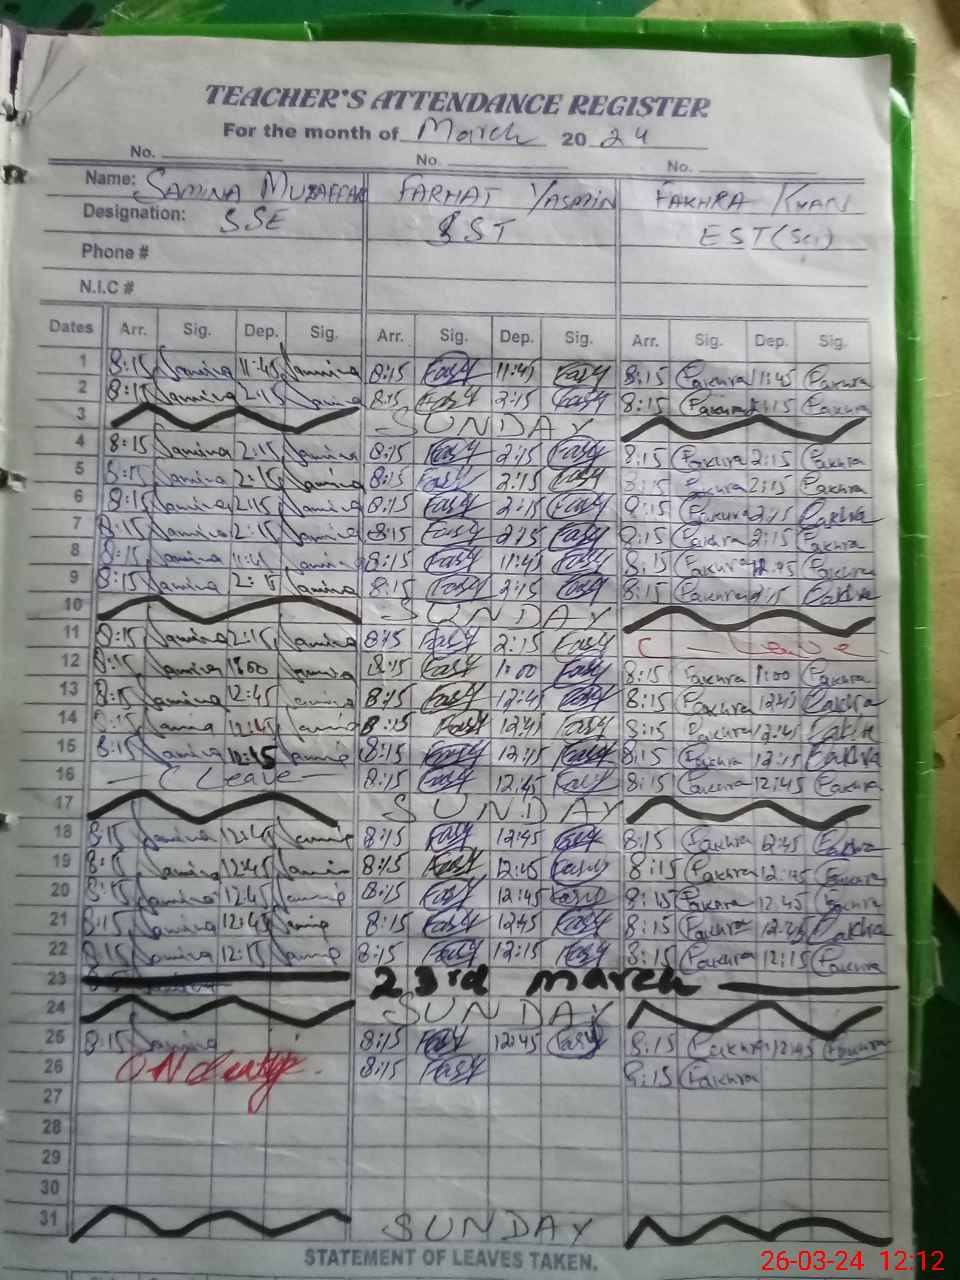 TEACHER'S ATTENDANCE REGISTER
For the month of March 2024
No. No. No.
Name: SAMINA MUZAFFAR FARHAT YASMIN FAKHRA KHAN
Designation: SSE SST EST (Sci)
Phone #
N.I.C #
Dates Arr. Sig. Dep. Sig. Arr. Sig. Dep. Sig. Arr. Sig. Dep. Sig.
1 8:15 Samina 11:45 Samina 8:15 Fasy 11:45 Fasy 8:15 Fakhra 11:45 Fakhra
2 8:15 Samina 2:15 Samina 8:15 Fasy 2:15 Fasy 8:15 Fakhra 2:15 Fakhra
3 SUNDAY
4 8:15 Samina 2:15 Samina 8:15 Fasy 2:15 Fasy 8:15 Fakhra 2:15 Fakhra
5 8:15 Samina 2:15 Samina 8:15 Fasy 2:15 Fasy 8:15 Fakhra 2:15 Fakhra
6 8:15 Samina 2:15 Samina 8:15 Fasy 2:15 Fasy 8:15 Fakhra 2:15 Fakhra
7 8:15 Samina 2:15 Samina 8:15 Fasy 2:15 Fasy 8:15 Fakhra 2:15 Fakhra
8 8:15 Samina 11:45 Samina 8:15 Fasy 11:45 Fasy 8:15 Fakhra Fakhra
9 8:15 Samina 2:15 Samina 8:15 Fasy 2:15 Fasy 8:15 Fakhra 2:15 Fakhra
10 SUNDAY
11 8:15 Samina 2:15 Samina 8:15 Fasy 2:15 Fasy C - Leave
12 8:15 Samina 1:00 Samina 8:15 Fasy 1:00 Fasy 8:15 Fakhra 1:00 Fakhra
13 8:15 Samina 12:45 Samina 8:15 Fasy 12:45 Fasy 8:15 Fakhra 12:45 Fakhra
14 8:15 Samina 12:45 Samina 8:15 Fasy 12:45 Fasy 8:15 Fakhra 12:45 Fakhra
15 8:15 Samina 12:15 Samina 8:15 Fasy 12:15 Fasy 8:15 Fakhra 12:15 Fakhra
16 — C Leave — 8:15 Fasy 12:45 Fasy 8:15 Fakhra 12:45 Fakhra
17 SUNDAY
18 8:15 Samina 12:45 Samina 8:15 Fasy 12:45 Fasy 8:15 Fakhra 12:45 Fakhra
19 8:15 Samina 12:45 Samina 8:15 Fasy 12:45 Fasy 8:15 Fakhra 12:45 Fakhra
20 8:15 Samina 12:45 Samina 8:15 Fasy 12:45 Fasy 8:15 Fakhra 12:45 Fakhra
21 8:15 Samina 12:45 Samina 8:15 Fasy 12:45 Fasy 8:15 Fakhra 12:45 Fakhra
22 8:15 Samina 12:15 Samina 8:15 Fasy 12:15 Fasy 8:15 Fakhra 12:15 Fakhra
23 23rd march
24 SUNDAY
25 8:15 Samina 8:15 Fasy 12:45 Fasy 8:15 Fakhra 12:45 Fakhra
26 ON duty. 8:15 Fasy 8:15 Fakhra
27
28
29
30
31 SUNDAY
STATEMENT OF LEAVES TAKEN.
26-03-24 12:12